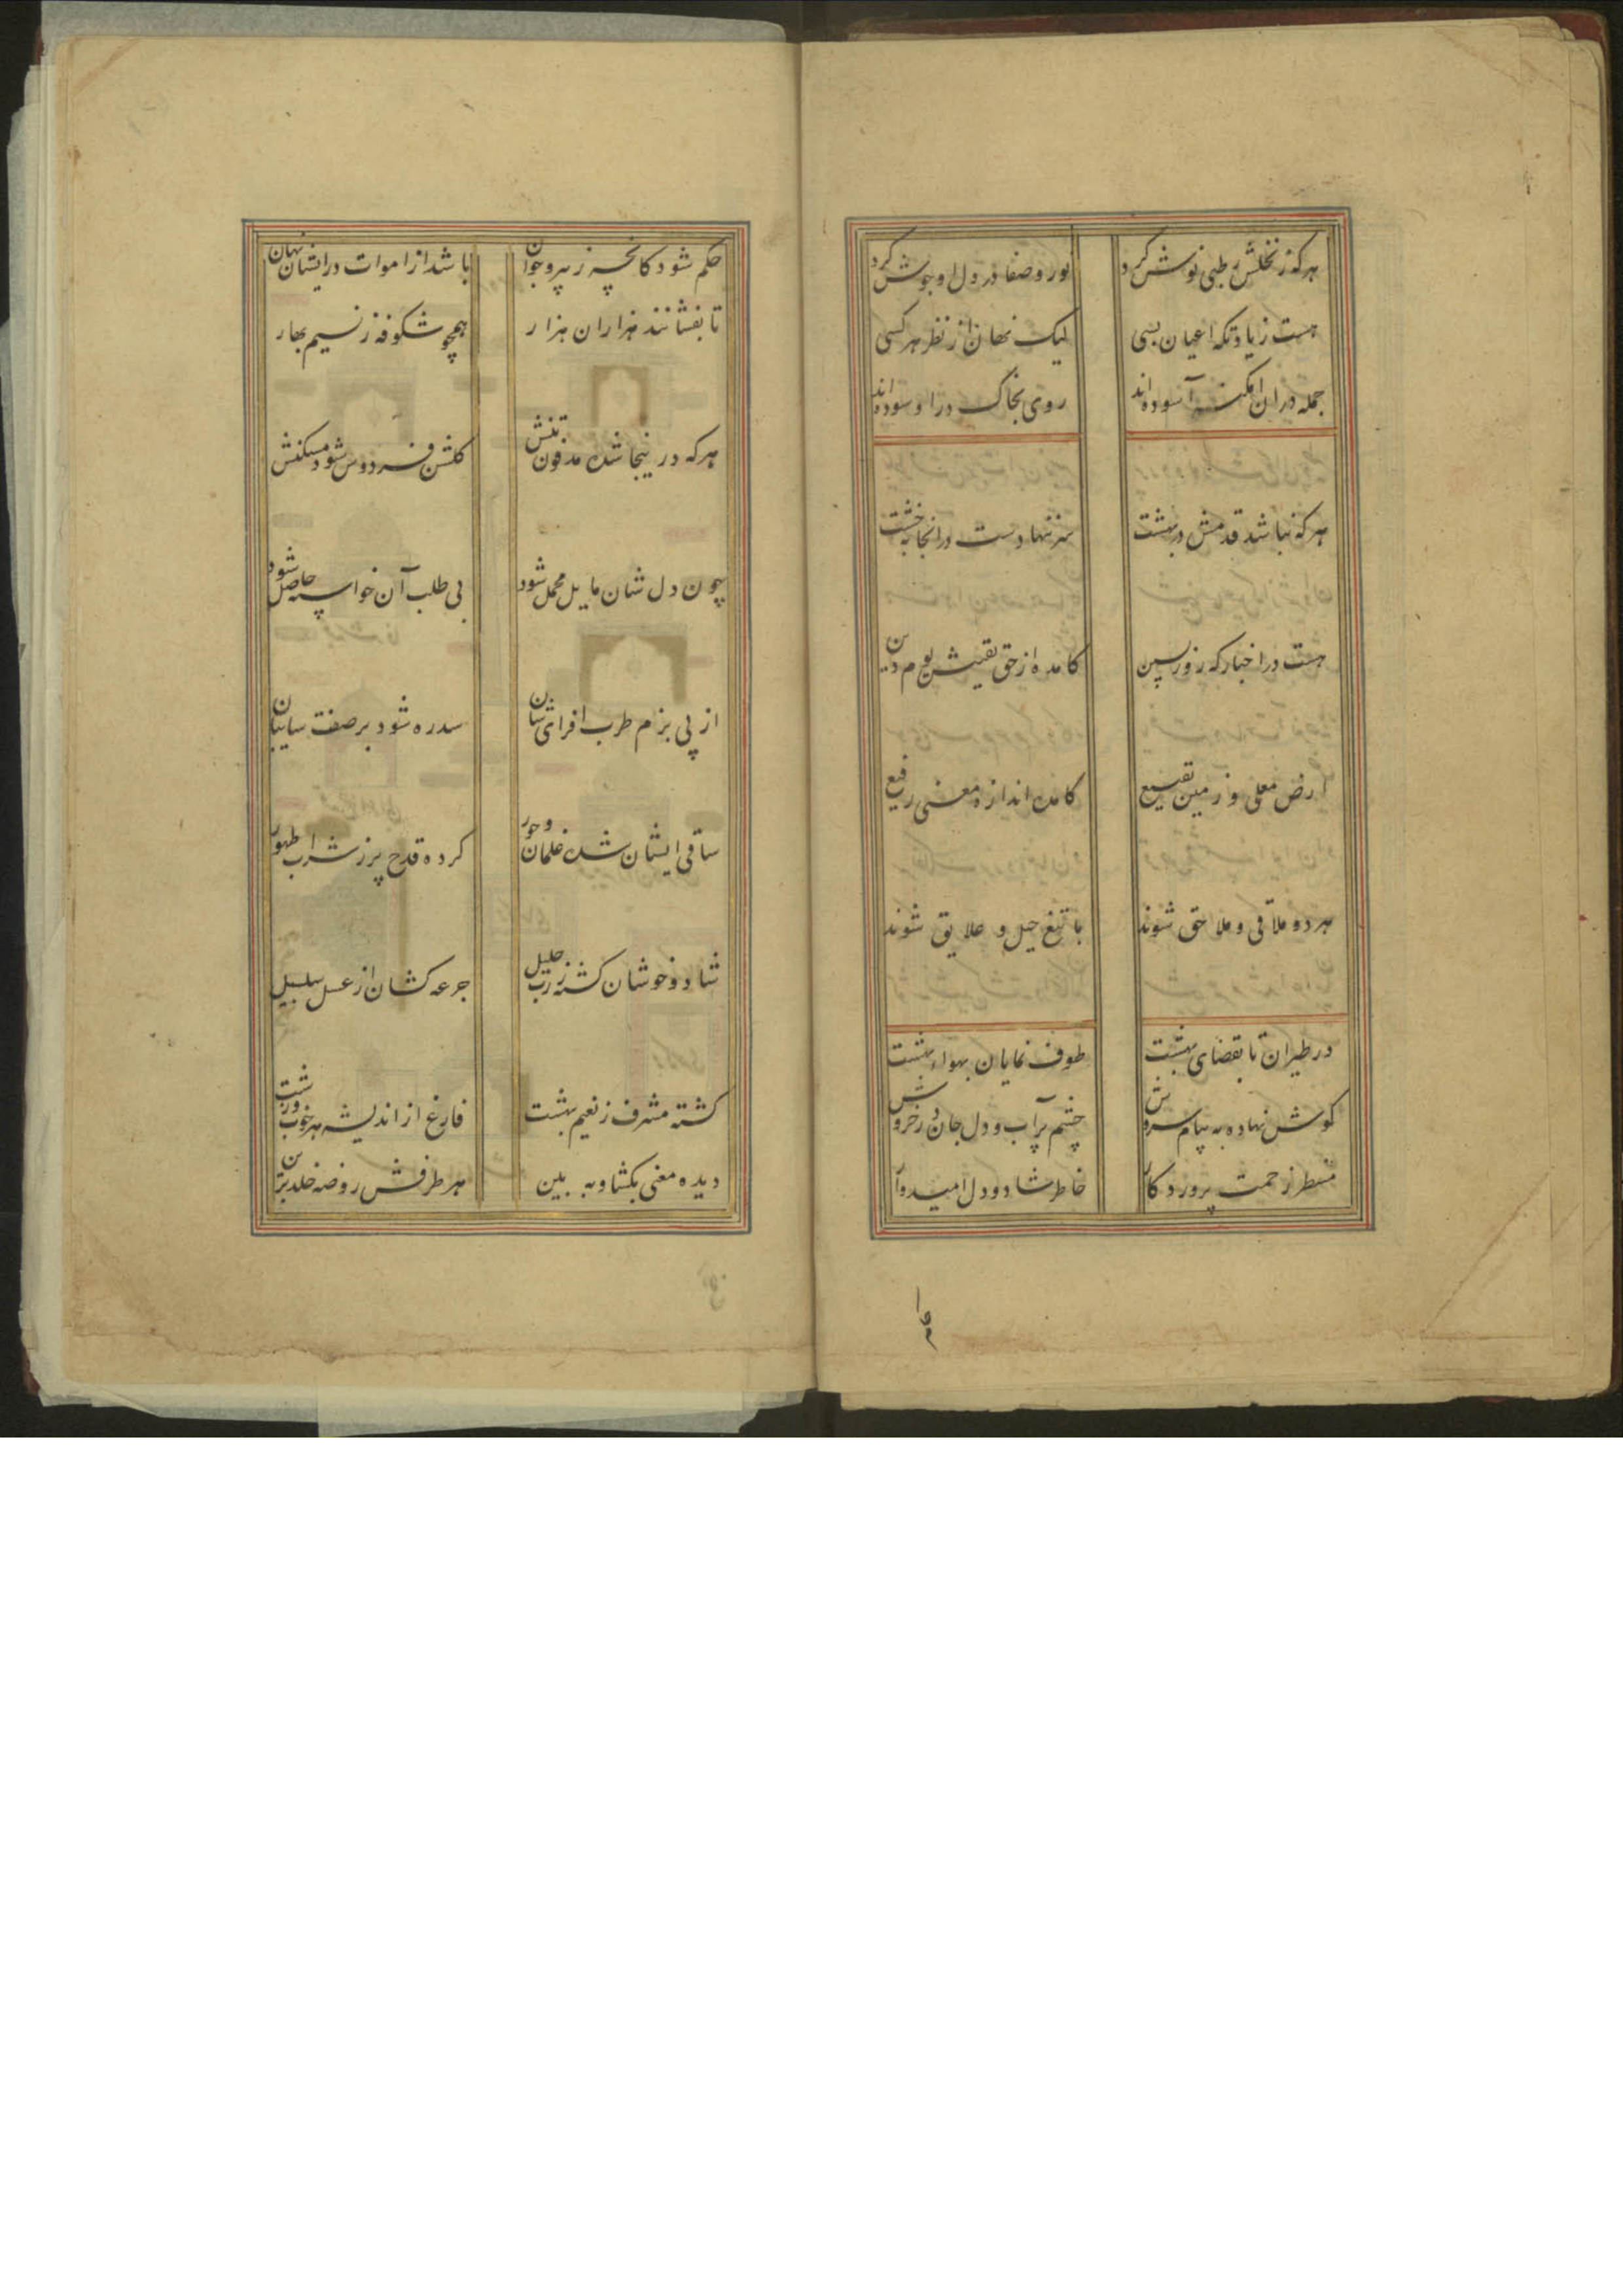 هرکه ز نخلش رطبی نوش کرد
نور و صفا در دل او جوش کرد
هست زیارتکه اعیان بسی
لیک نهان از نظر هر کسی
جمله در ان امکنه آسوده اند
روی بخاک در او سوده اند
هرکه نباشد قدمش در بهشت
سر ننهادست در انجا بخشت
هست در اخبار که روز پسین
کامده از حق بقینش یوم دین
ارض معلی و زمین بقیع
کامده اندازه معنی رفیع
هر دو ملاقی و ملاحق شوند
با تبع جیل و علایق شوند
در طیران تا بفضای بهشت
طوف نمایان بهواء بهشت
کوش نهاده به پیام سروش
چشم پر آب و دل جان در خروش
منتظر رحمت پروردکار
خاطر شاد و دل امیدوار
حکم
حکم شود کانچه ز پیر و جوان
باشد از اموات در ایشان نهان
تا بفشانند هزاران هزار
همچو شکوفه ز نسیم بهار
هرکه در ینجا شده مدفون تنش
کلشن فردوس شود مسکنش
چون دل شان مایل محمل شود
بی طلب آن خواسته حاصل شود
از پی بزم طرب افزای شان
سدره شود بر صفت سایبان
ساقی ایشان شده غلمان و حور
کرده قدح پر ز شراب طهور
شاد و خوشان کشته ز رب جلیل
جرعه کشان از عسل سلسبیل
کشته مشرف ز نعیم بهشت
فارغ از اندیشه هر خوب و زشت
دیده معنی بکشا و به بین
هر طرفش روضه خلد برین